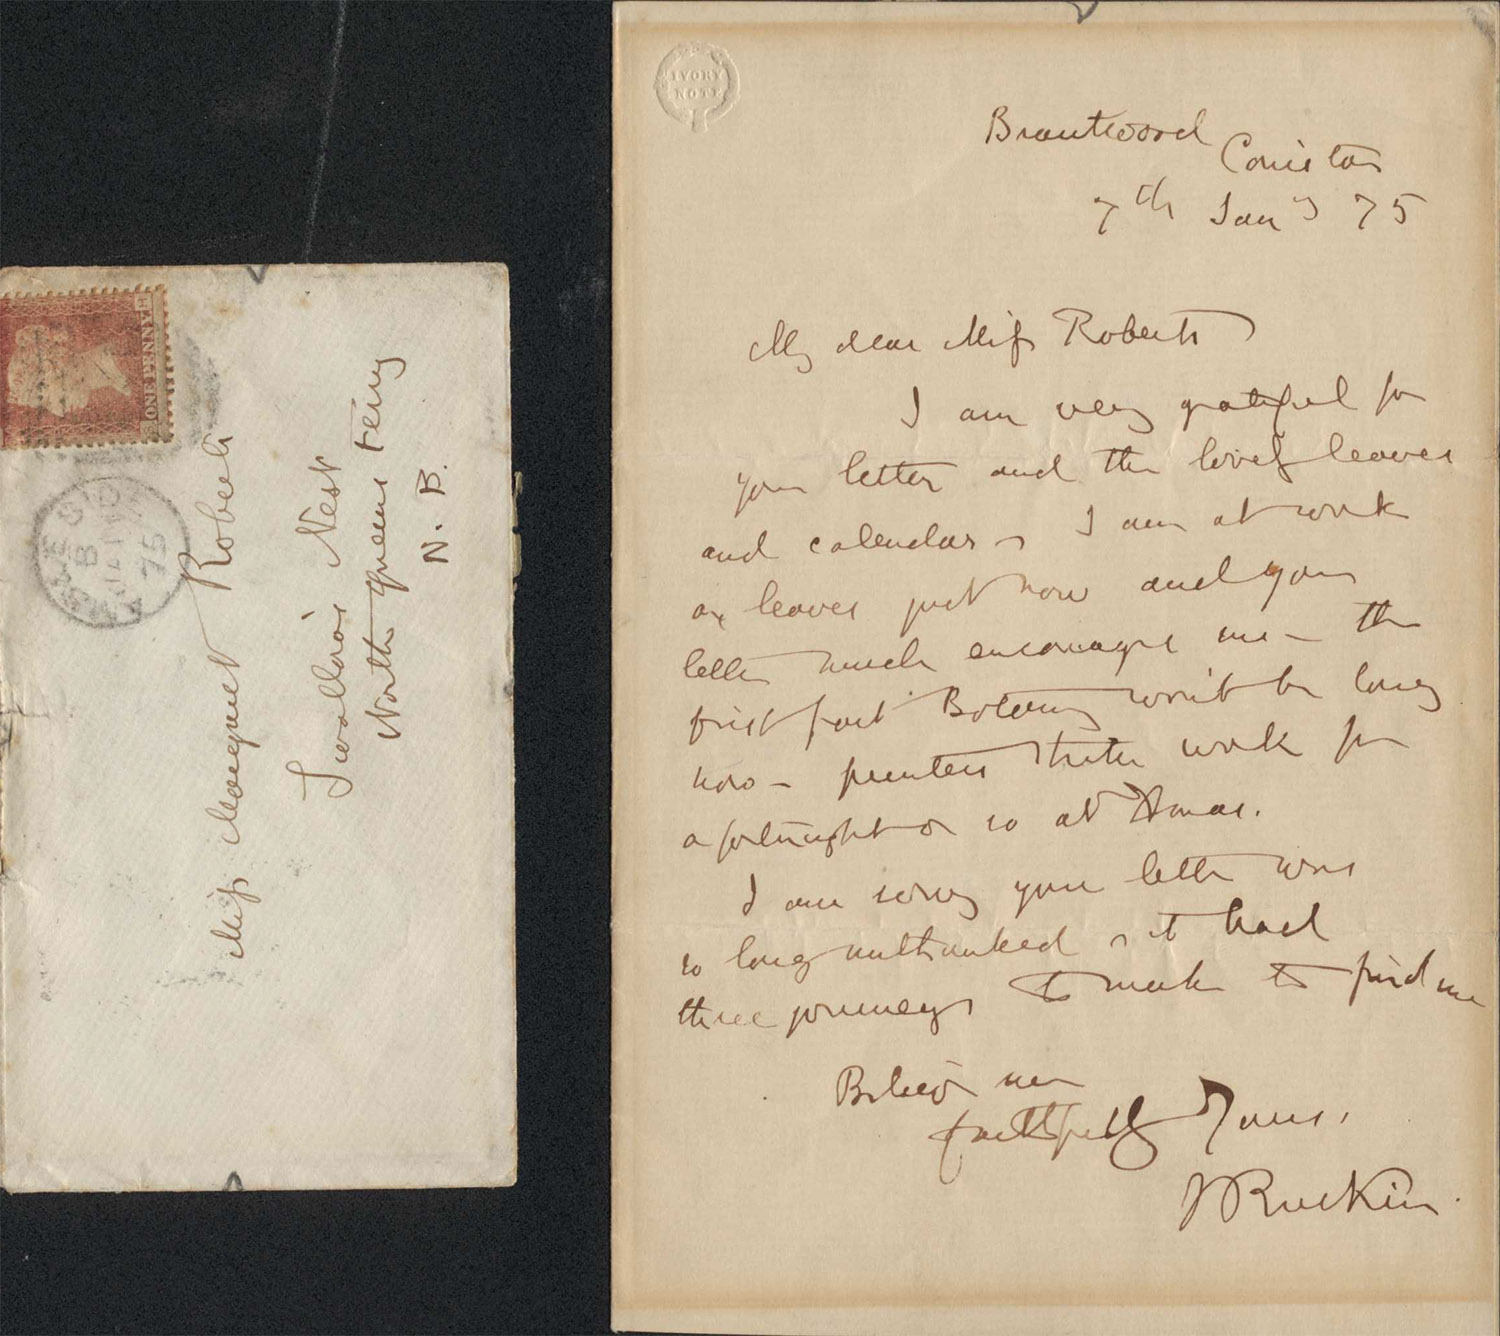 ONE PENNY
H
AMBLESIDE
8
JA
75
Miss Margaret Roberts
Swallow's Nest
North Queens Ferry
N. B.
IVORY
NOTE
Brantwood
Coniston
7th Jany 75
My dear Miss Roberts
I am very grateful for
your letter and the lovely leaves
and calendar - I am at work
on leaves just now and your
letter much encourages me - the
first part Botany won't be long
now - printers strike work for
a fortnight or so at Xmas.
I am sorry your letter was
so long unthanked - it had
three journeys to make to find me
Believe me
faithfully Yours.
J Ruskin.